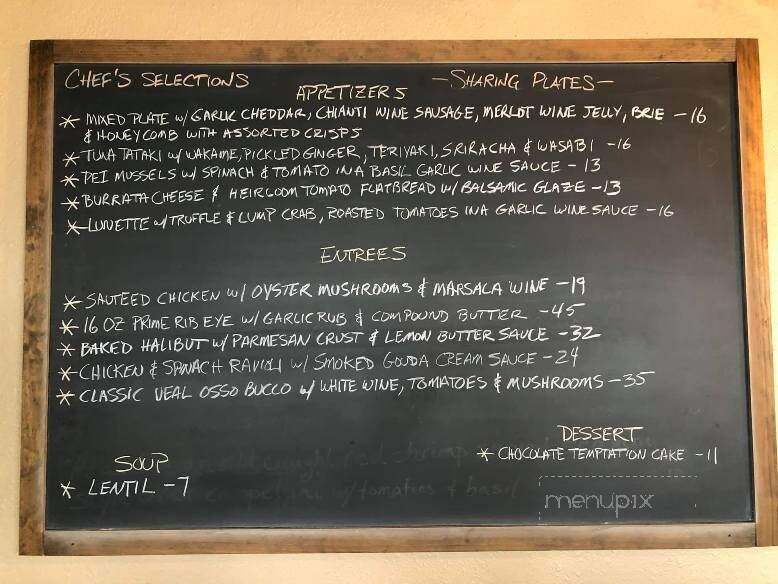 CHEF'S SELECTIONS
— SHARING PLATES —
APPETIZERS
* MIXED PLATE W/ GARLIC CHEDDAR, CHIANTI WINE SAUSAGE, MERLOT WINE JELLY, BRIE - 16
& HONEYCOMB WITH ASSORTED CRISPS
* TUNA TATAKI W/ WAKAME, PICKLED GINGER, TERIYAKI, SRIRACHA & WASABI - 16
* PEI MUSSELS W/ SPINACH & TOMATO IN A BASIL GARLIC WINE SAUCE - 13
* BURRATA CHEESE & HEIRLOOM TOMATO FLATBREAD W/ BALSAMIC GLAZE - 13
* LUNETTE W/ TRUFFLE & LUMP CRAB, ROASTED TOMATOES IN A GARLIC WINE SAUCE - 16
ENTREES
* SAUTEED CHICKEN W/ OYSTER MUSHROOMS & MARSALA WINE - 19
* 16 OZ PRIME RIB EYE W/ GARLIC RUB & COMPOUND BUTTER - 45
* BAKED HALIBUT W/ PARMESAN CRUST & LEMON BUTTER SAUCE - 32
* CHICKEN & SPINACH RAVIOLI W/ SMOKED GOUDA CREAM SAUCE - 24
* CLASSIC VEAL OSSO BUCCO W/ WHITE WINE, TOMATOES & MUSHROOMS - 35
DESSERT
* CHOCOLATE TEMPTATION CAKE - 11
SOUP
* LENTIL - 7
shrimp
w/ tomatoes & basil
menupix